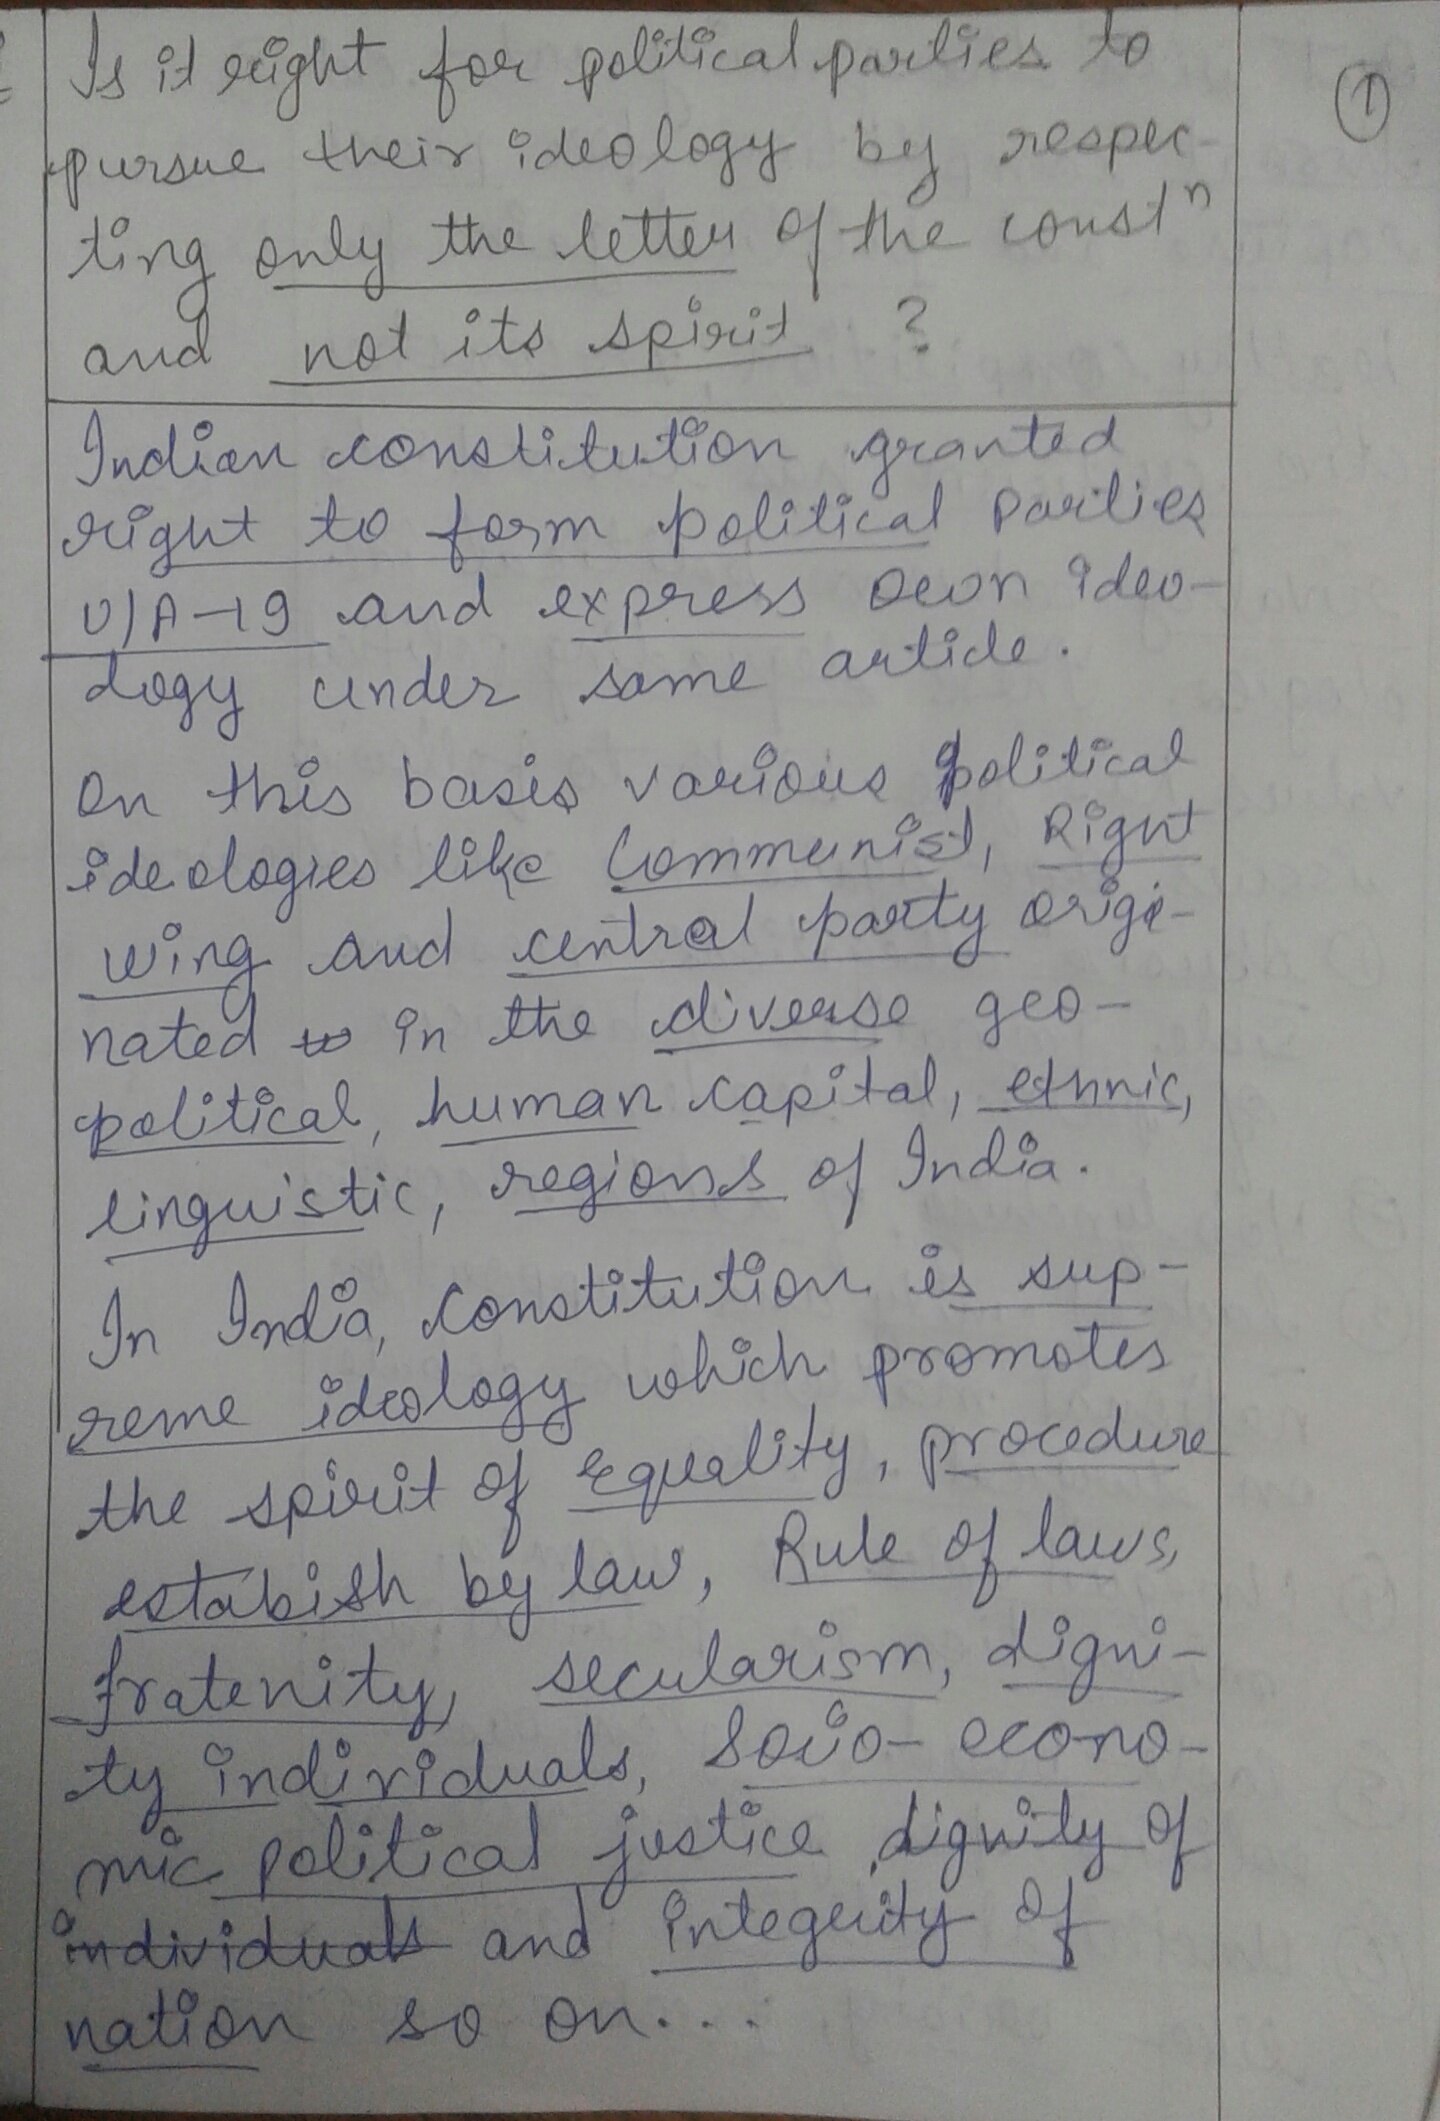 Is it right for political parties to
①
pursue their ideology by respec-
ting only the letter of the constⁿ
and not its spirit ?
Indian constitution granted
right to form political parties
U/A-19 and express own ideo-
logy under same article.
On this basis various political
ideologies like Communist, Right
wing and central party origi-
nated in the diverse geo-
political, human capital, ethnic,
linguistic, regions of India.
In India, Constitution is sup-
reme ideology which promotes
the spirit of Equality, procedure
estabish by law, Rule of laws,
fratenity, secularism, digni-
ty individuals, Socio- econo-
mic political justice, dignity of
individuals and integrity of
nation so on....